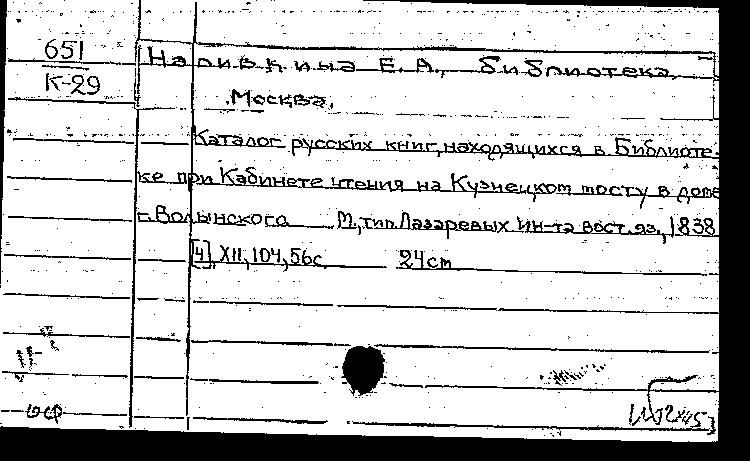 651
К-29
Наливкина Е. А., библиотека.
Москва.
Каталог русских книг, находящихся в Библиоте-
ке при Кабинете чтения на Кузнецком мосту в доме
г. Волынского М., тип. Лазаревых Ин-та вост. яз., 1838
[4], XII, 104, 56с. 24cm